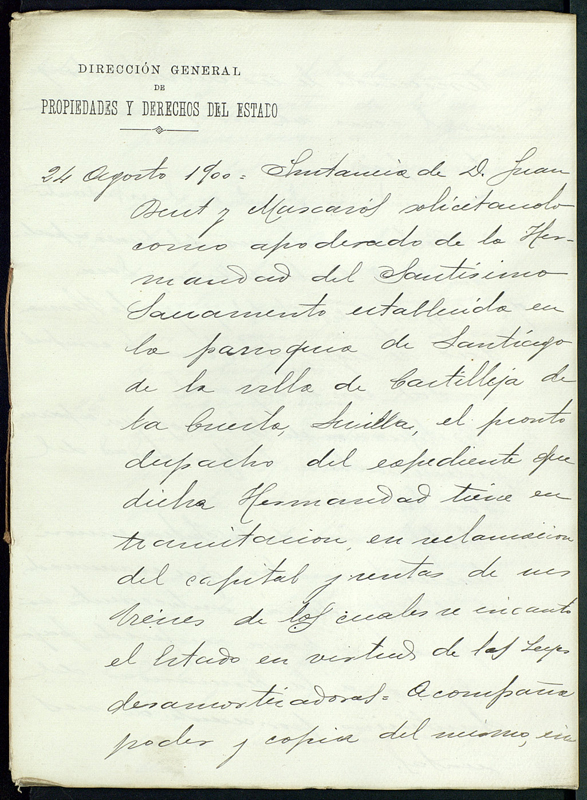 DIRECCIÓN GENERAL
DE
PROPIEDADES Y DERECHOS DEL ESTADO
24 Agosto 1900 = Instancia de D. Juan
y Mascarós solicitando
como apoderado de la Her-
mandad del Santísimo
Sacramento establecida en
la parroquia de Santiago
de la villa de Castilleja de
la Cuesta, Sevilla, el pronto
despacho del expediente que
dicha Hermandad tiene en
tramitacion, en reclamacion
del capital y rentas de sus
bienes de los cuales se incautó
el Estado en virtud de las Leyes
desamortizadoras = Acompaña
poder y copia del mismo,